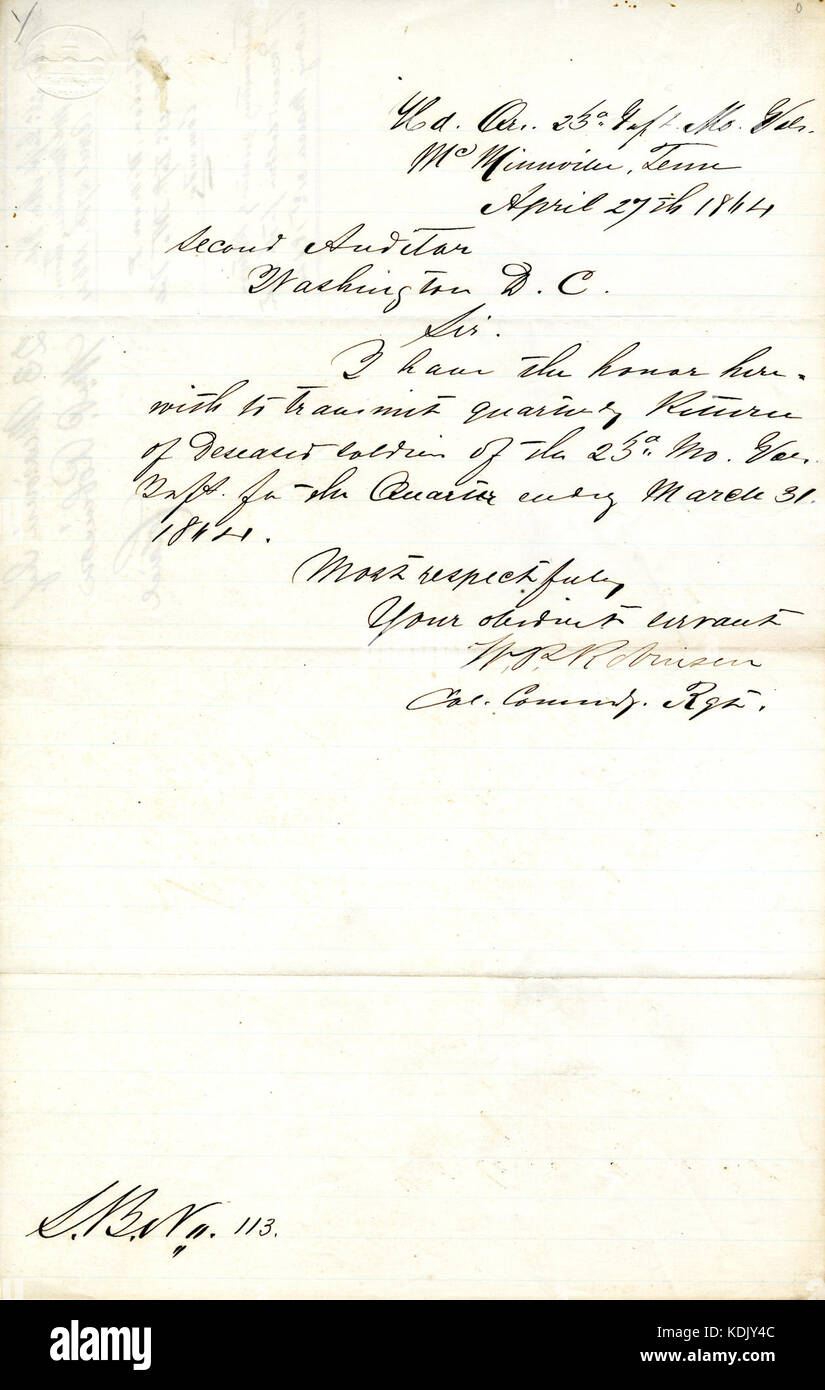 Hd. Qrs. 23d Inft. Mo. Vols.
McMinnville, Tenn
April 27th 1864
Second Auditor
Washington D. C.
Sir.
I have the honor here-
with to transmit quarterly Return
of Deseased Soldiers of the 23d Mo. Vols.
Inft. for the Quarter ending March 31.
1864.
Most respectfully
Your obedient servant
W. P. Robinson
Col. Commdg. Regt.
L. B. No. 113.
alamy stock photo
KDJY4C
www.alamy.com